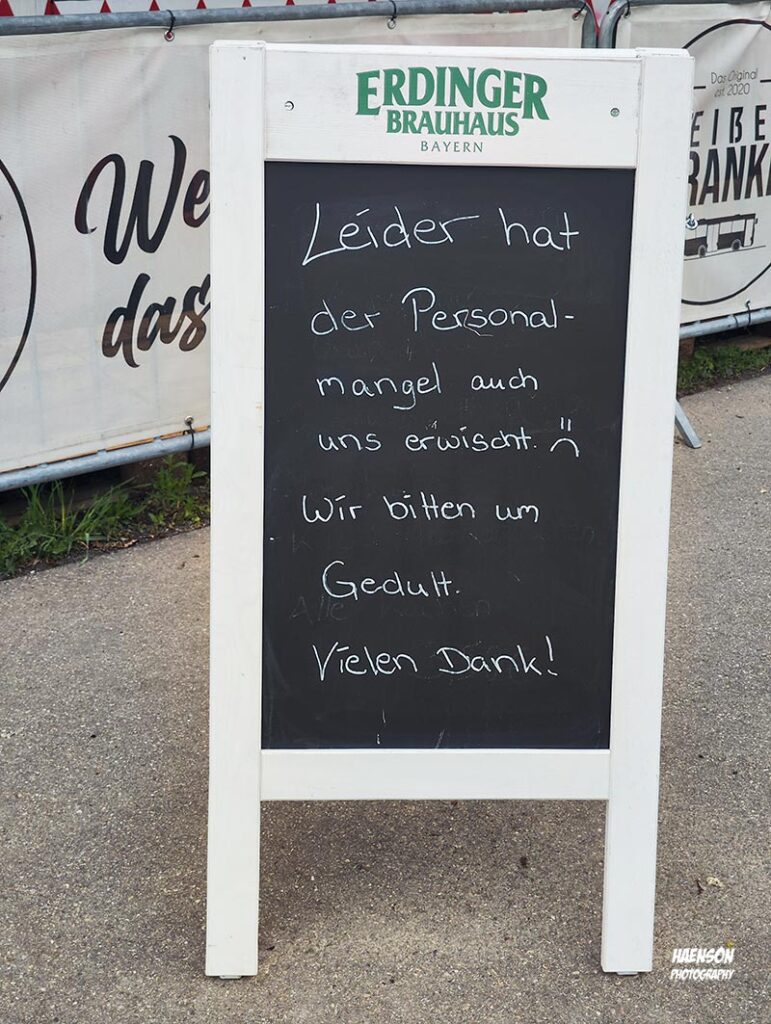 ERDINGER
BRAUHAUS
BAYERN
Leider hat
der Personal-
mangel auch
uns erwischt.
Wir bitten um
Gedult.
Vielen Dank!
das
Das Original
est. 2020
HAENSON
PHOTOGRAPHY